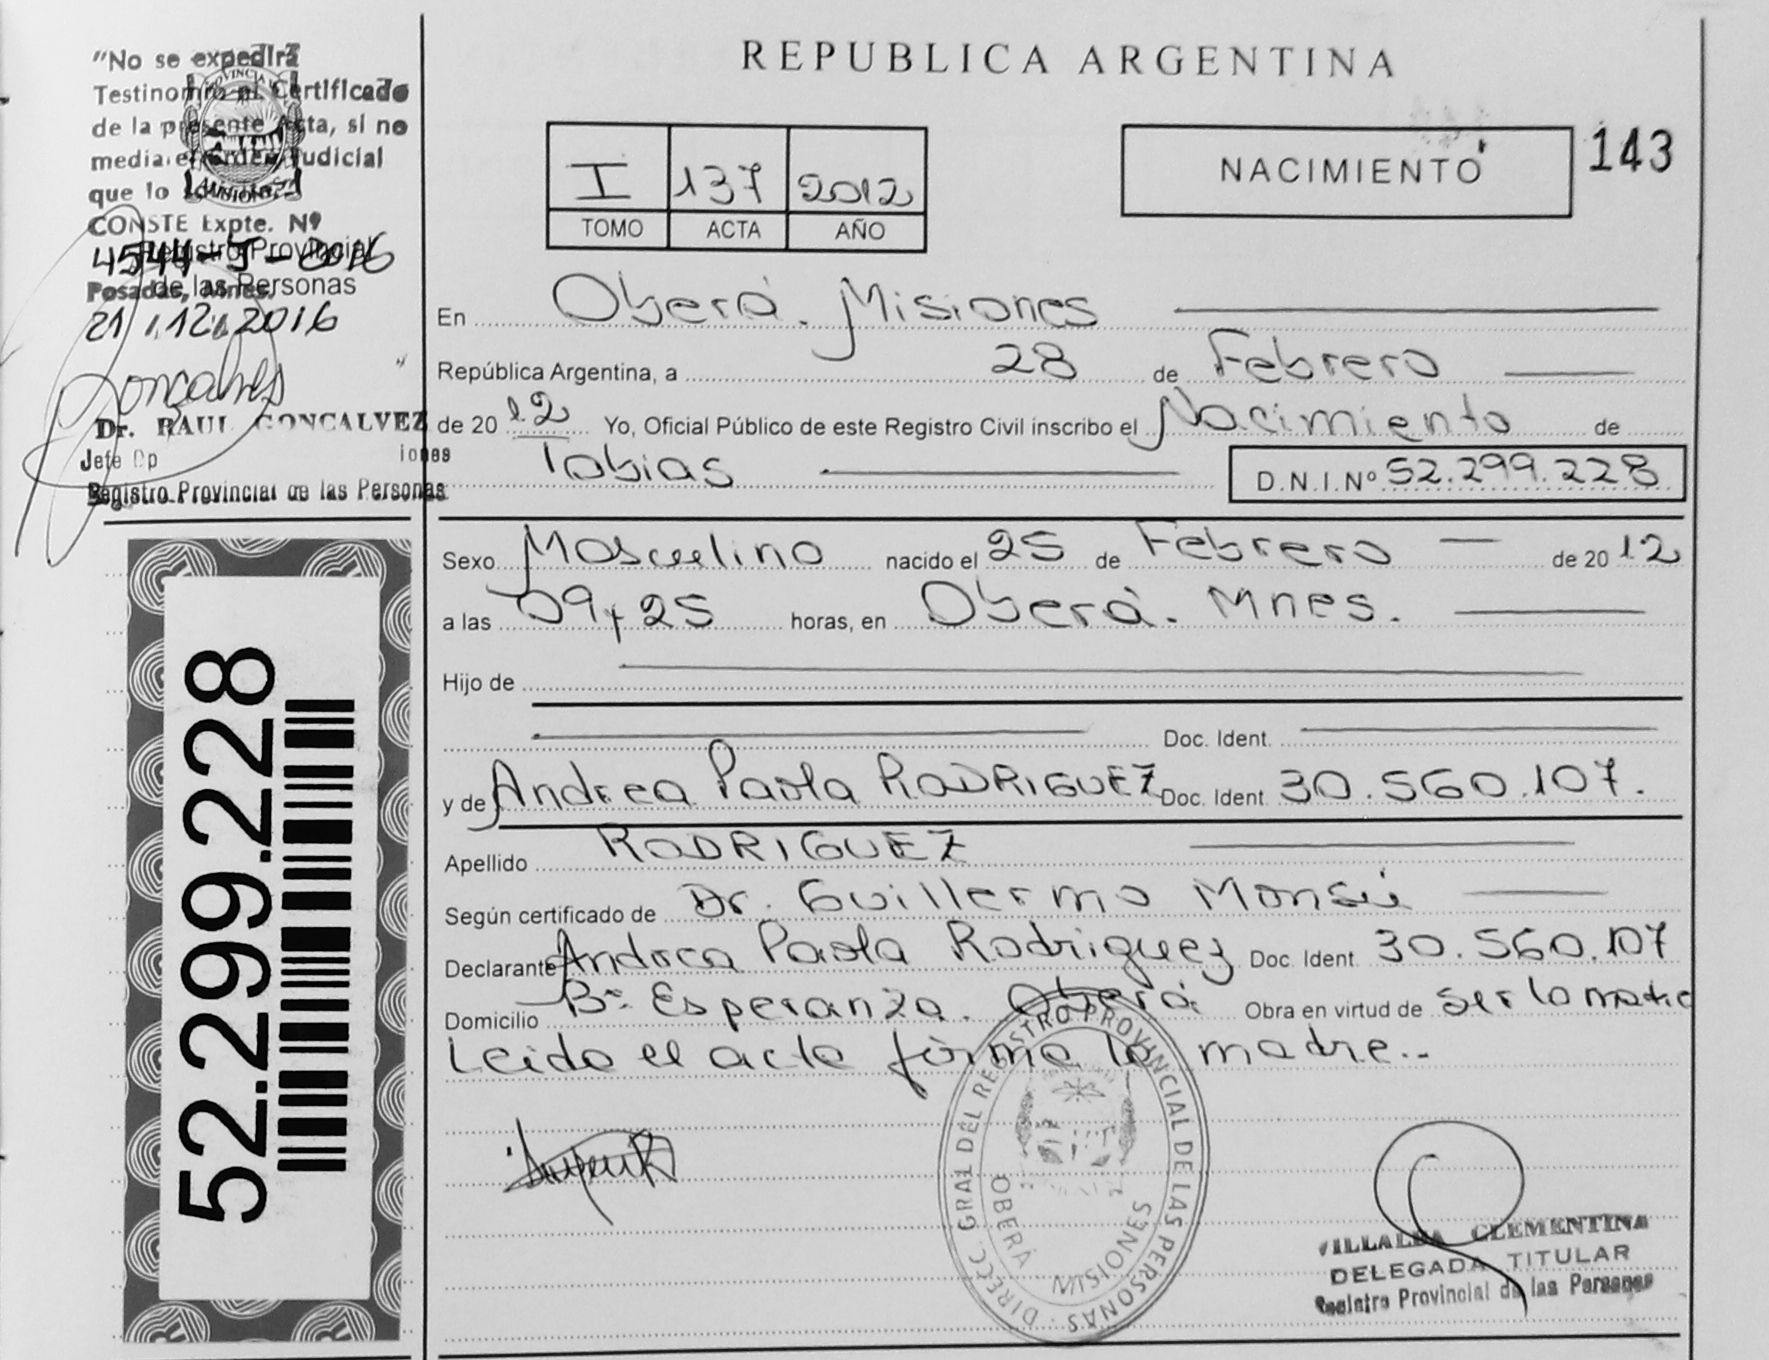 "No se expedirá
Testinomio ni Certificado
de la presente Acta, si no
media orden Judicial
que lo
MISIONES
CONSTE Expte. Nº
Registro Provincial
4544-J-2016
de las Personas
Posadas, Mnes.
21/12/2016
"
Dr. RAUL GONCALVEZ
Jefe Dp iones
Registro Provincial de las Personas
52.299.228
REPUBLICA ARGENTINA
I 137 2012
TOMO ACTA AÑO
NACIMIENTO 143
En Oberá. Misiones
República Argentina, a 28 de Febrero
de 2012 Yo, Oficial Público de este Registro Civil inscribo el Nacimiento de
Tobias D.N.I.Nº 52.299.228
Sexo Masculino nacido el 25 de Febrero de 2012
a las 09 y 25 horas, en Oberá. Mnes.
Hijo de
Doc. Ident.
y de Andrea Paola RODRIGUEZ Doc. Ident. 30.560.107.
Apellido RODRIGUEZ
Según certificado de Dr. Guillermo Monsú
Declarante Andrea Paola Rodriguez Doc. Ident. 30.560.107
Domicilio Bº Esperanza. Oberá Obra en virtud de ser la madre
Leida el acta firma la madre..
DIRECC. GRAL DEL REGISTRO PROVINCIAL DE LAS PERSONAS
OBERÁ MISIONES
VILLALBA CLEMENTINA
DELEGADA TITULAR
Registro Provincial de las Personas